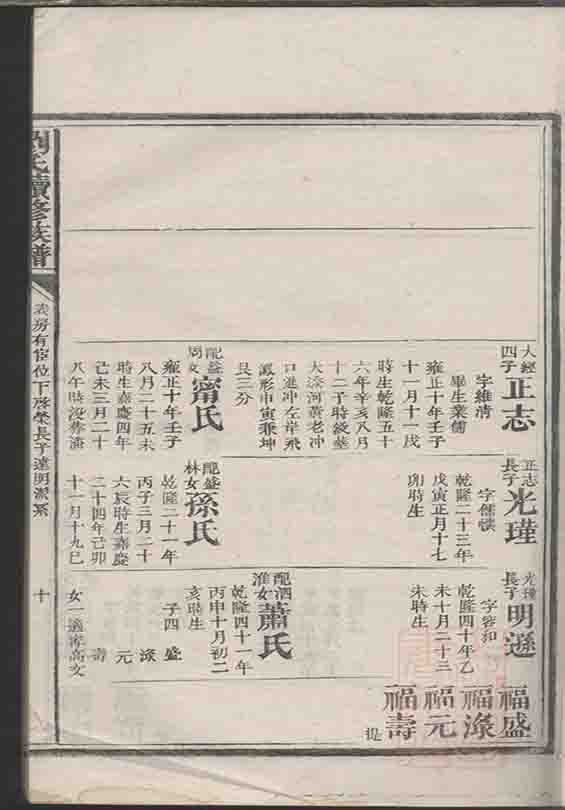 劉氏續修族譜
表房有宦位下啓榮長子達明派系
十
大經四子
正志
字維清
畢生業儒
雍正十年壬子
十一月十一戌
時生乾隆五十
六年辛亥八月
十二子時歿葬
大濠河黃老冲
口進冲左岸飛
鳳形申寅兼坤
艮三分
配益周女
甯氏
雍正十年壬子
八月二十五未
時生嘉慶四年
己未三月二十
八午時沒葬濠
正志長子
光瑾
字儒
乾隆二十三年
戊寅正月十七
卯時生
配盛林女
孫氏
乾隆二十一年
丙子三月二十
六辰時生嘉慶
二十四年己卯
十一月十九巳
光瑾長子
明遜
字容和
乾隆四十年乙
未十月二十三
未時生
配泗淮女
蕭氏
乾隆四十一年
丙申十月初二
亥時生
子四 盛
淥
元
壽
女一適甯高文
福盛
福淥
福元
福壽
提